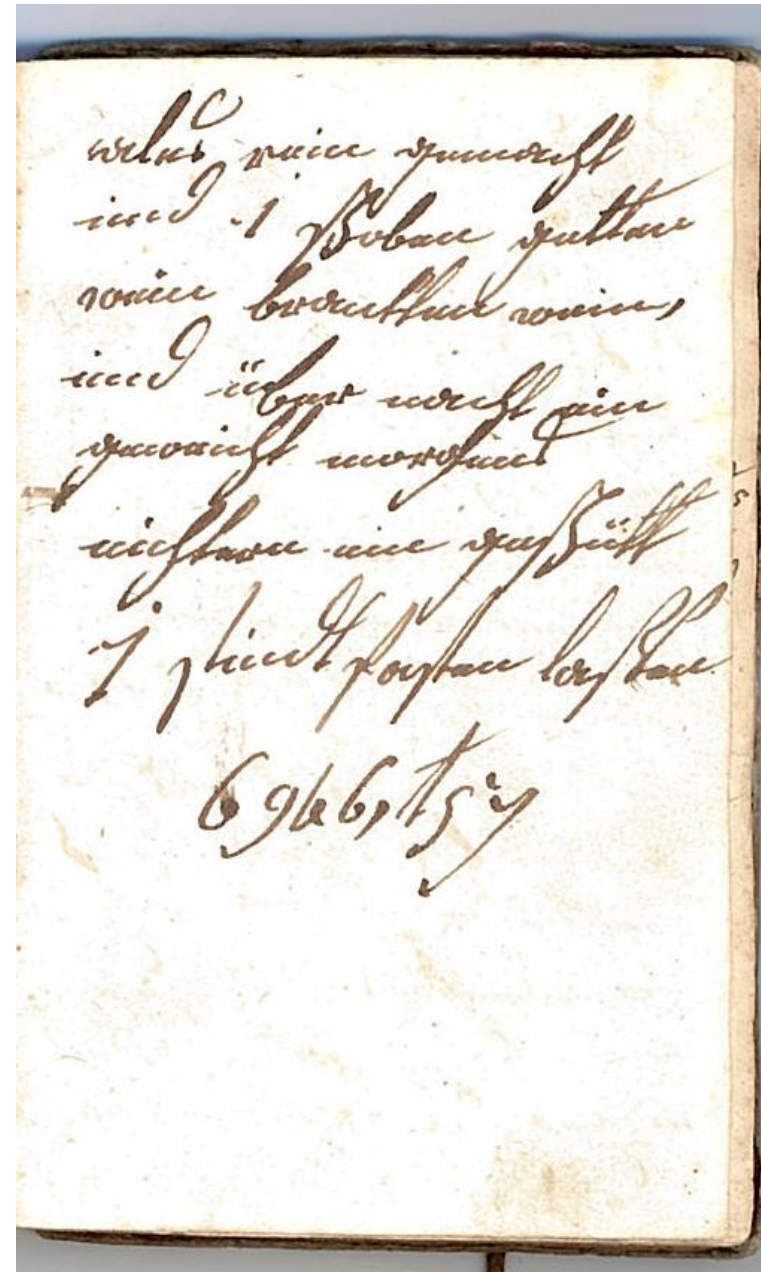 ales rein gemacht
und 1 Schoben gutten
wein brantten wein,
und über nacht ein
geweicht morgens
nichtern ein geschütt
1 stindt fasten laßen